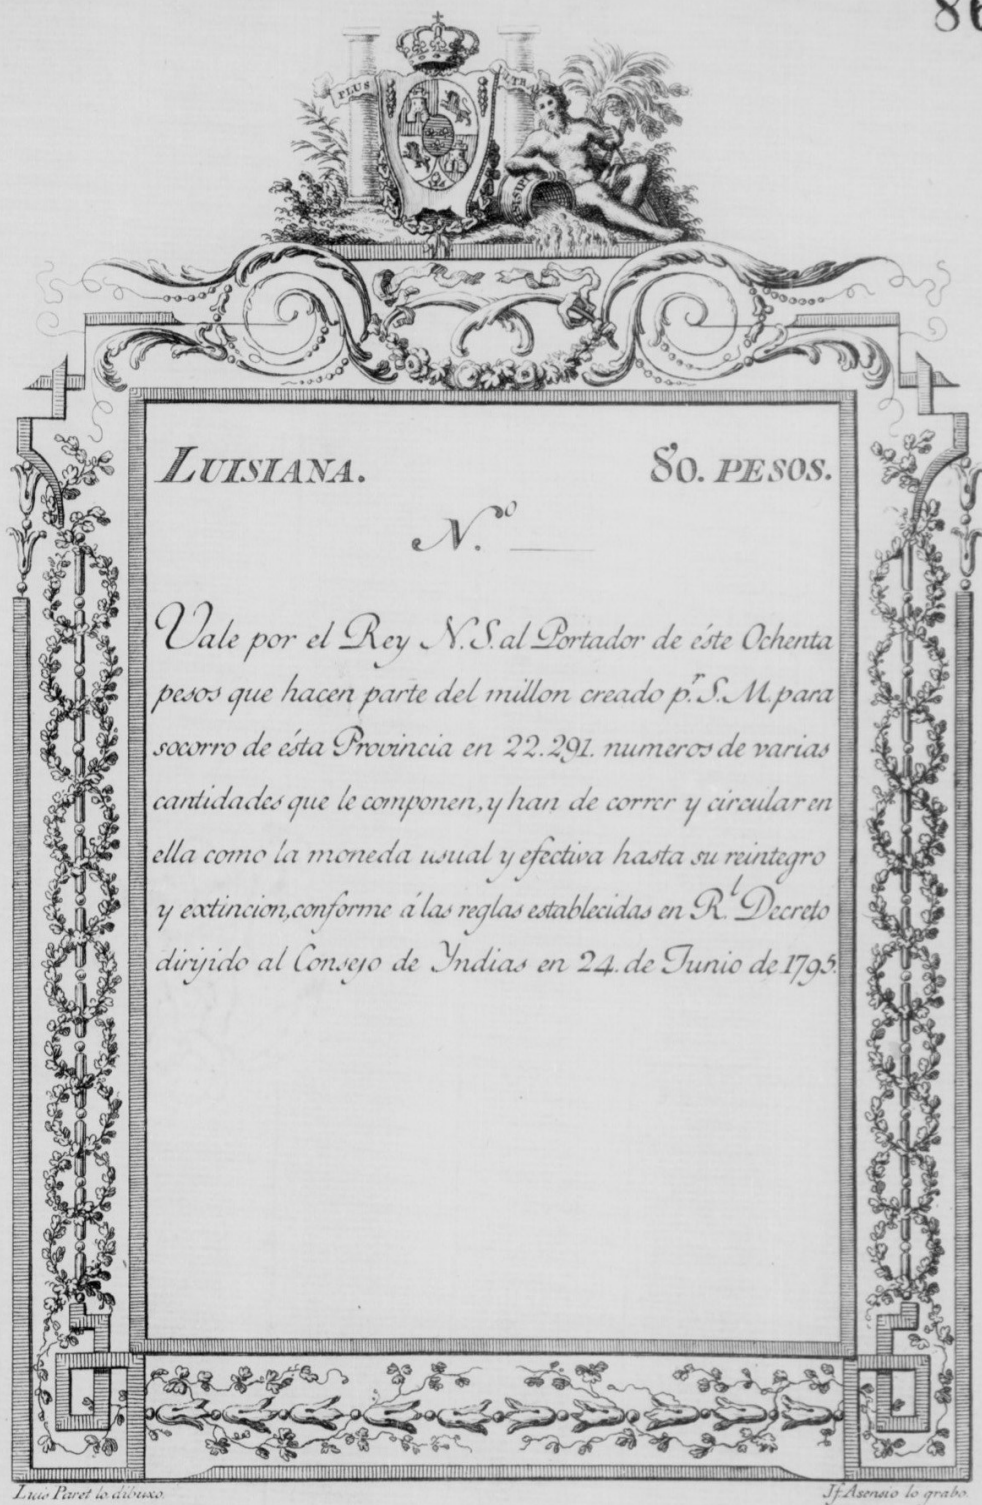 86
PLUS
LTR
ESSIPI
LUISIANA. 80. PESOS.
N.º
Vale por el Rey N. S. al Portador de éste Ochenta
pesos que hacen parte del millon creado p.r S. M. para
socorro de ésta Provincia en 22.291. numeros de varias
cantidades que le componen, y han de correr y circular en
ella como la moneda usual y efectiva hasta su reintegro
y extincion, conforme á las reglas establecidas en R.l Decreto
dirijido al Consejo de Yndias en 24. de Junio de 1795.
Luis Paret lo dibuxo. Jf Asensio lo grabo.